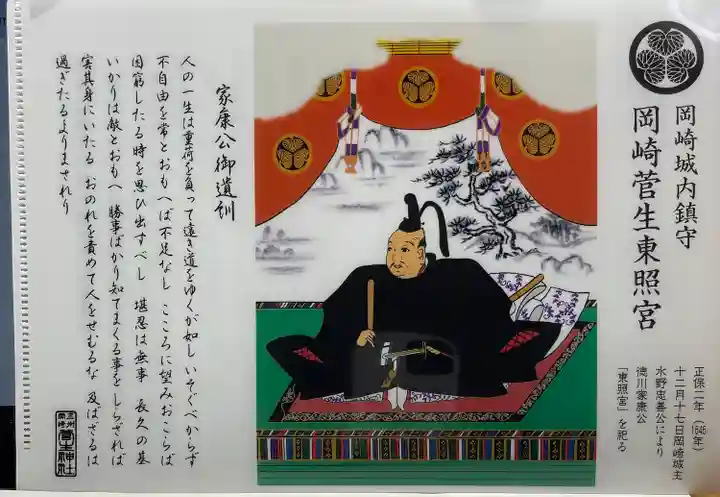 岡崎城内鎮守
岡崎菅生東照宮
正保二年（1645年）
十二月十七日岡崎城主
水野忠善公により
徳川家康公
「東照宮」を祀る
家康公御遺訓
人の一生は重荷を負って遠き道をゆくが如し いそぐべからず
不自由を常とおもへば不足なし こころに望みおこらば
困窮したる時を思ひ出すべし 堪忍は無事 長久の基
いかりは敵とおもへ 勝事ばかり知てまくる事をしらざれば
害其身にいたる おのれを責めて人をせむるな 及ばざるは
過ぎたるよりまされり
三州
岡崎
菅生神社